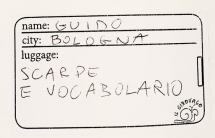 name: GUIDO
city: BOLOGNA
luggage:
SCARPE
E VOCABOLARIO